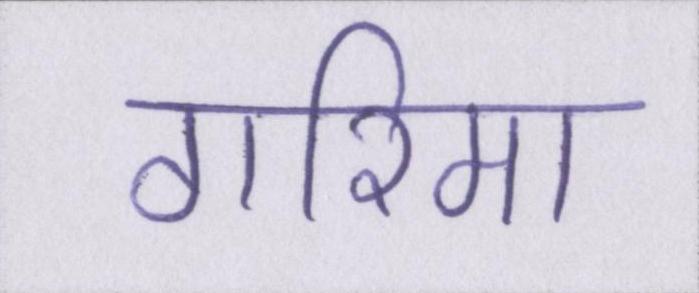 गरिमा